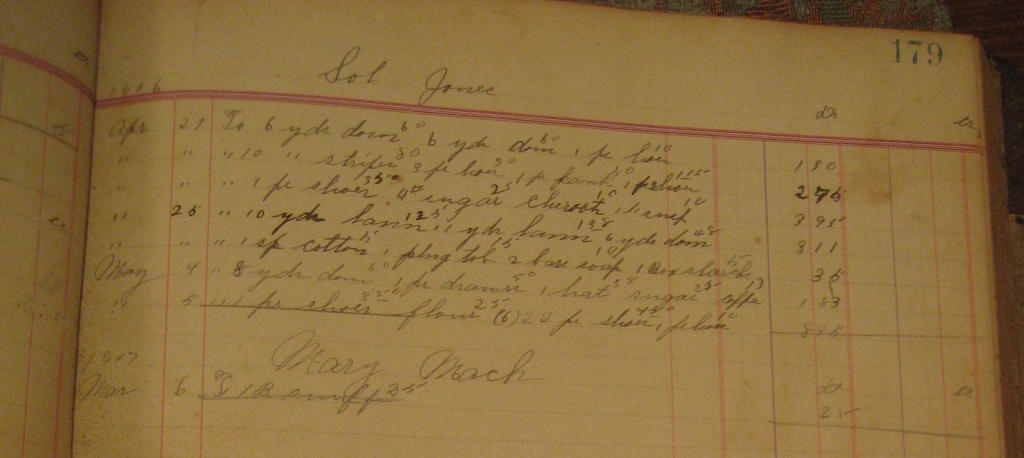 179
Sol Jones
1906 dr cr
Apr 21 To 6 yds dom 60 6 yds dom 60 1 pr hose 10 1 30
" " " 10 " stripes 80 3 pr hose 30 1 pr pants 50 1 pr shoes 115 2 75
" " " 1 pr shoes 350 sugar 25 cheroots 10 1 " snuf 10 3 95
" 25 " 10 yds lawn 125 11 yds lawn 138 6 yds dom 48 3 11
" " " 1 sp cotton 5 1 plug tob 15 2 bars soap 10 1 Box starch 5 35
May 4 " 8 yds dom 60 1 pr drawers 50 1 hat sugar 25 coffe 13 1 83
" 5 " 1 pr shoes flour 25 (6) 22 pr shoes 450 1 pr hose 10
Mary Mack
1907 dr cr
Mar 6 To 1 B snuff 25 25